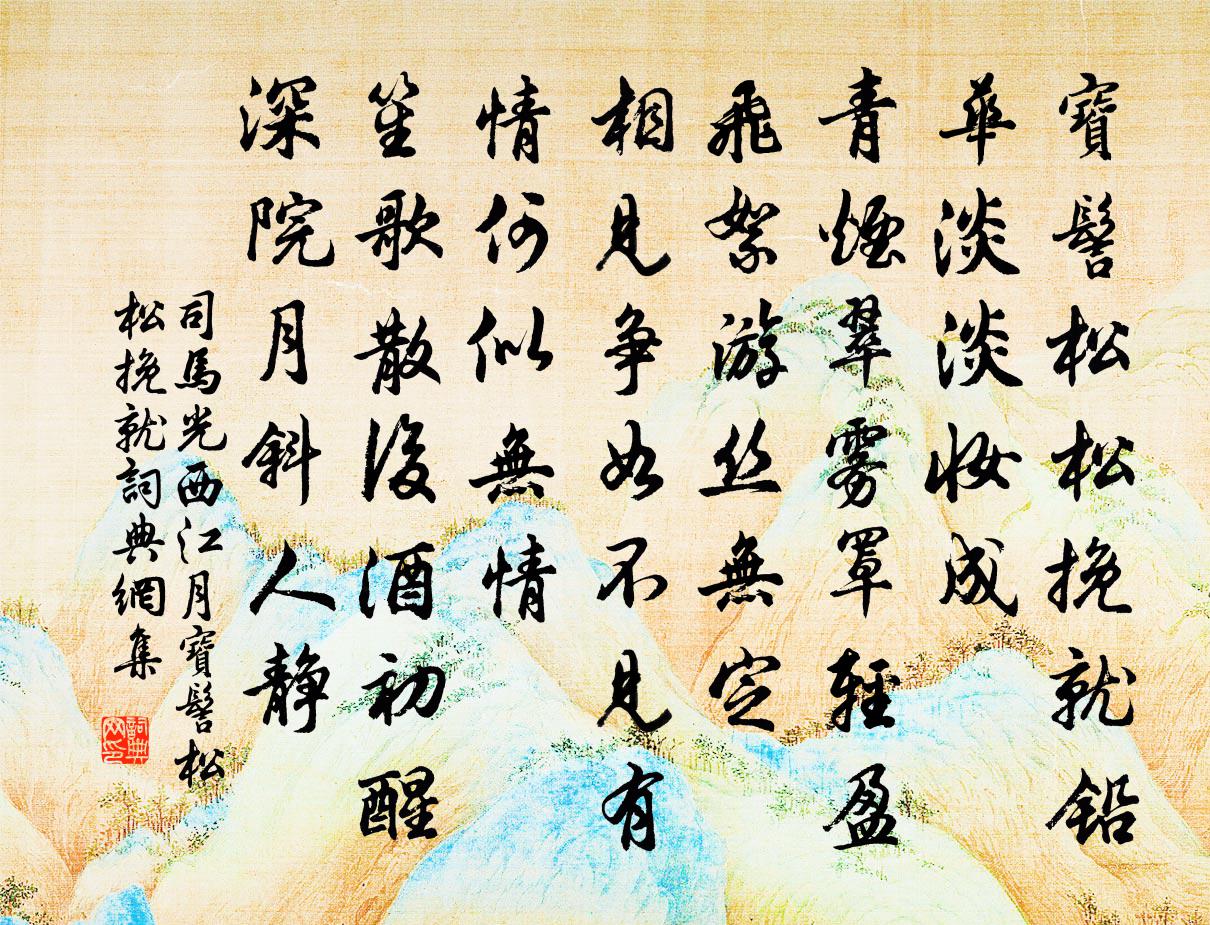 寶髻松松挽就鉛
華淡淡妝成
青煙翠霧罩輕盈
飛絮游丝無定
相見爭如不見有
情何似無情
笙歌散後酒初醒
深院月斜人靜
司馬光西江月寶髻松
松挽就詞典網集
詞典
网印